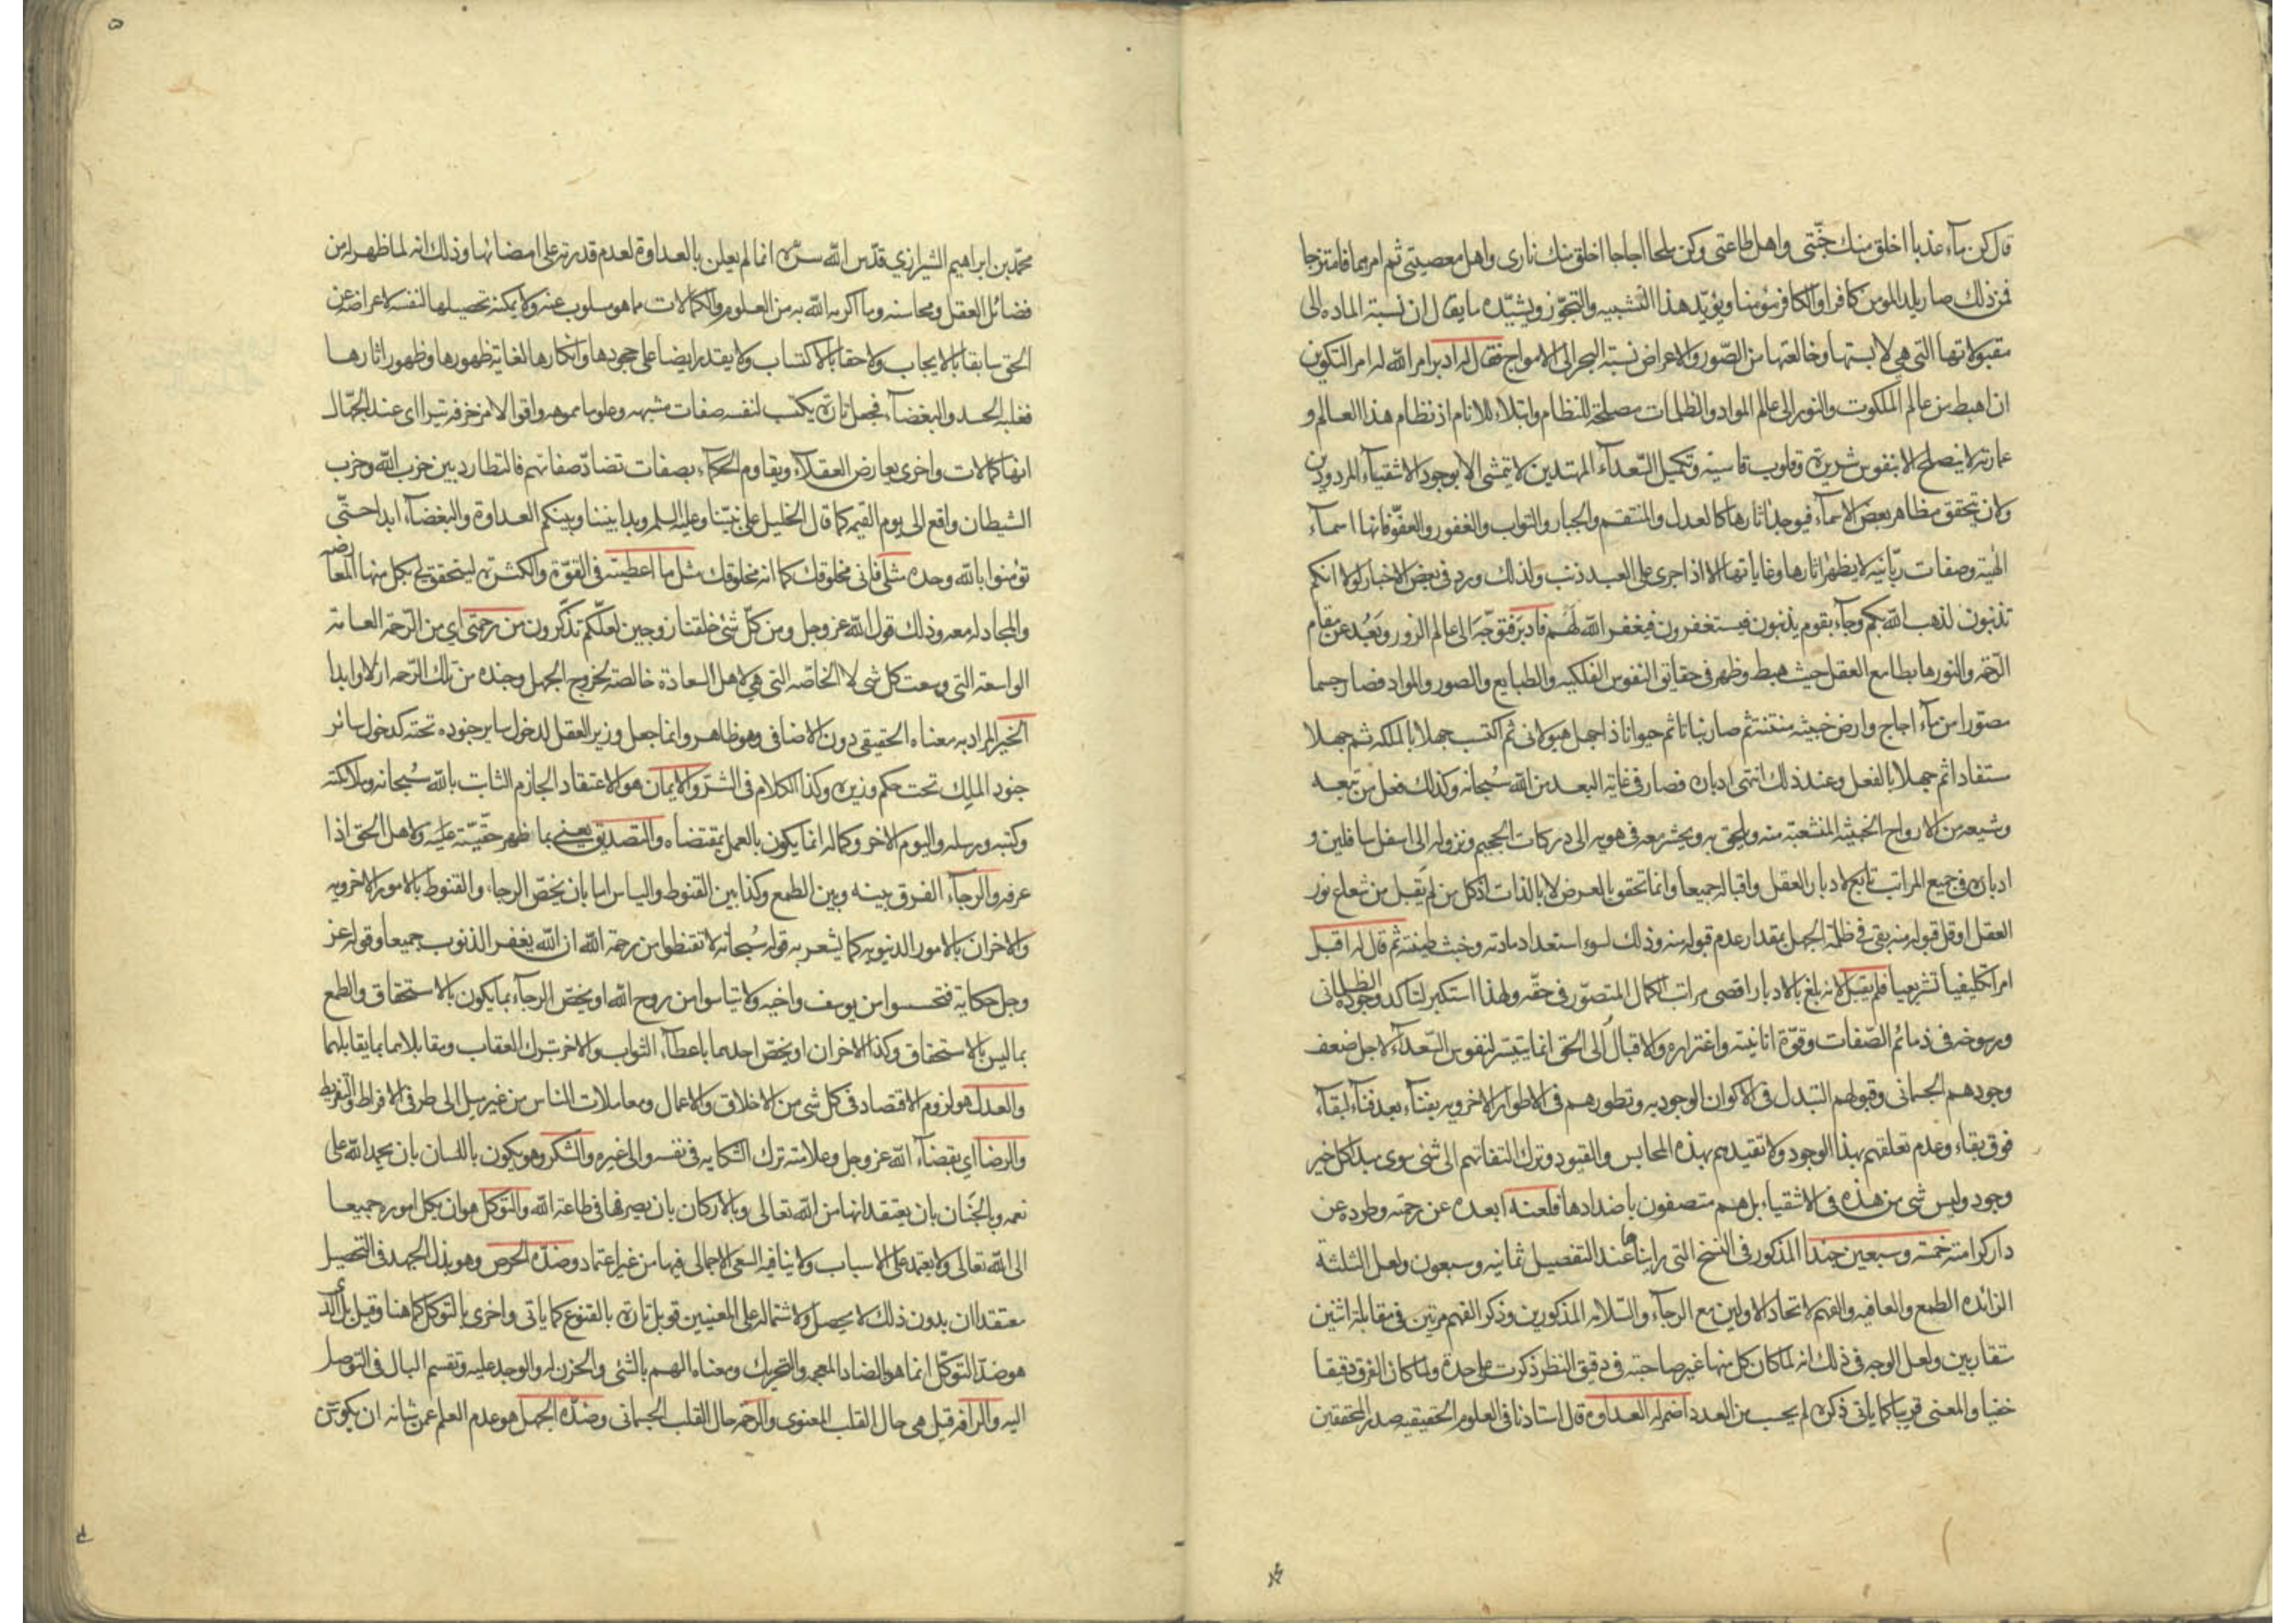 قال كن ماء عذبا اخلق منك جنّتي واهل طاعتي وكن ملحا اجاجا اخلق منك ناري واهل معصيتي ثم امرهما فامتزجا
فمن ذلك صار يلد المومن كافرا والكافر مؤمنا ويؤيّد هذا التشبيه والتجوّز ويشيّده ما يقال ان نسبة الماده الى
مقبولاتها التي هي لابستها وخالعتها من الصّور والاعراض نسبة البحر الى الامواج فقال له ادبر امر الله له امر التكوين
ان اهبط من عالم الملكوت والنور الى عالم المواد والظلمات مصلحة للنظام وابتلاء للانام اذ نظام هذا العالم و
عمارته لا ينصلح الا بنفوس شريرة وقلوب قاسية وتكميل السّعداء المهتدين لا يتمشى الا بوجود الاشقياء المردودين
ولان يتحقق مظاهر بعض الاسماء فيوجد اثارها كالعدل والمنتقم والجبار والتواب والغفور والعفوّ فانها اسماء
الهية وصفات ربّانيه لا يظهر اثارها وغاياتها الا اذا جرى على العبد ذنب ولذلك ورد في بعض الاخبار لولا انكم
تذنبون لذهب الله بكم وجاء بقوم يذنبون فيستغفرون فيغفر الله لهم فادبر فتوجّه الى عالم الزور وبعد عن مقام
الرّحمة والنور هابطا مع العقل حيث هبط وظهر في حقايق النفوس الفلكيه والطبايع والصور والمواد فصار جسما
مصوّرا من ماء اجاج وارض خبيثه منتنة ثم صار نباتا ثم حيوانا ذا جهل هيولاني ثم اكتسب جهلا بالملكه ثم جهلا
مستفادا ثم جهلا بالفعل وعند ذلك انتهى ادباره فصار في غاية البعد من الله سبحانه وكذلك فعل من تبعه
وشيعه من الارواح الخبيثه المنشعبة منه ويلحق به ويحشر معه في هويه الى دركات الجحيم ونزوله الى اسفل سافلين و
ادباره في جميع المراتب تابع لادبار العقل واقباله جميعا وانما تحقق بالعرض لا بالذات اذ كل من لم يقبل من شعاع نور
العقل او قل قبوله منه بقي في ظلمة الجهل بمقدار عدم قبوله منه وذلك لسوء استعداد مادته وخبث طينته ثم قال له اقبل
امرا تكليفيا تشريعيا فلم يقبل لانه بلغ بالادبار اقصى مراتب الكمال المتصوّر في حقّه ولهذا استكبر لتاكد وجوده الظلماني
ورسوخه في ذمائم الصّفات وقوّة انانيته واغتراره والاقبال الى الحق انما يتيسّر لنفوس السّعداء لاجل ضعف
وجودهم الجسماني وقبولهم التبدل في الاكوان الوجوديه وتطورهم في الاطوار الاخرويه بفناء بعد فناء لبقاء
فوق بقاء وعدم تعلقهم بهذا الوجود ولا تقيدهم بهذه المحابس والقيود وترك التفاتهم الى شئ سوى مبدا كل خير
وجود وليس شئ من هذه في الاشقياء بل هم متصفون باضدادها فلعنه ابعده عن رحمته وطرده عن
دار كرامته خمسة وسبعين جندا المذكور في النسخ التي رايناها عند التفصيل ثمانيه وسبعون ولعل الثلثة
الزائده الطمع والعافيه والفهم لاتحاد الاولين مع الرجاء والسّلامه المذكورين وذكر الفهم مرتين في مقابلة اثنين
متقاربين ولعل الوجه في ذلك انه لما كان كل منها غير صاحبته في دقيق النظر ذكرت على حدة ولما كان الفرق دقيقا
خفيا والمعنى قريبا كما ياتي ذكره لم يحسب من العدد اضمر له العداوة قال استادنا في العلوم الحقيقيه صدر المحققين
محمّد بن ابراهيم الشيرازي قدّس الله سرّه انما لم يعلن بالعداوة لعدم قدرته على امضائها وذلك انه لما ظهر له من
فضائل العقل ومحاسنه وما اكرمه الله به من العلوم والكمالات ما هو مسلوب عنه ولا يمكنه تحصيلها لنفسه لاعراضه عن
الحق سابقا بالايجاب ولاحقا بالاكتساب ولا يقدر ايضا على جحودها وانكارها لغاية ظهورها وظهور اثارها
فغلبه الحسد والبغضاء فجعل تارة يكتسب لنفسه صفات مشبهه وعلوما مموهه واقوالا مزخرفه تتراءى عند الجهّال
انها كمالات واخرى يعارض العقلاء ويقاوم الحكماء بصفات تضادّ صفاتهم فالتطارد بين حزب الله وحزب
الشيطان واقع الى يوم القيمه كما قال الخليل على نبيّنا وعليه السلم وبدا بيننا وبينكم العداوة والبغضاء ابدا حتّى
تؤمنوا بالله وحده مثلي فاني مخلوقك كما انه مخلوقك مثل ما اعطيته في القوّة والكثرة ليتحقق لي بكل منها المعارضه
والمجادله معه وذلك قول الله عز وجل ومن كلّ شئ خلقنا زوجين لعلّكم تذكّرون من رحمتي اي من الرّحمة العامة
الواسعة التي وسعت كل شئ لا الخاصّه التي هي لاهل السعادة خالصة لخروج الجهل وجنده من تلك الرّحمه ازلا وابدا
الخير المراد به معناه الحقيقي دون الاضافي وهو ظاهر وانما جعل وزير العقل لدخول ساير جنوده تحته كدخول سائر
جنود الملك تحت حكم وزيره وكذا الكلام في الشرّ والايمان هو الاعتقاد الجازم الثابت بالله سبحانه وملائكته
وكتبه ورسله واليوم الاخر وكماله انما يكون بالعمل بمقتضاه والتصديق يعني بما ظهر حقّيّته عليه ولاهل الحق اذا
عرفه والرجاء الفرق بينه وبين الطمع وكذا بين القنوط والياس اما بان يخصّ الرجاء والقنوط بالامور الاخرويه
والاخران بالامور الدنيويه كما يشعر به قوله سبحانه لا تقنطوا من رحمة الله ان الله يغفر الذنوب جميعا وقوله عز
وجل حكاية فتحسسوا من يوسف واخيه ولا تياسوا من روح الله او يخص الرجاء بما يكون بالاستحقاق والطمع
بما ليس بالاستحقاق وكذا الاخران او يخصّ احدهما باعطاء الثواب والاخر بترك العقاب ومقابلاهما بما يقابلهما
والعدل هو لزوم الاقتصاد في كل شئ من الاخلاق والاعمال ومعاملات الناس من غير ميل الى طرفي الافراط والتفريط
والرضا اي بقضاء الله عز وجل وعلامته ترك الشكايه في نفسه والى غيره والشكر وهو يكون باللسان بان يحمد الله على
نعمه وبالجنان بان يعتقد انها من الله تعالى وبالاركان بان يصرفها في طاعة الله والتوكل هو ان يكل اموره جميعا
الى الله تعالى ولا يعتمد على الاسباب ولا ينافيه السعي الاجمالي فيها من غير اعتماد وضدّه الحرص وهو بذل الجهد في التحصيل
معتقدا ان بدون ذلك لا يحصل ولاشتماله على المعنيين قوبل تارة بالقنوع كما ياتي واخرى بالتوكل كما هنا وقيل بل الذي
هو ضدّ التوكّل انما هو بالضاد المعجمه والتحريك ومعناه الهم بالشئ والحزن له والوجد عليه وتقسم البال في التوصل
اليه والرافه قيل هي حال القلب المعنوي والرحمه حال القلب الجسماني وضدّه الجهل هو عدم العلم عمن شانه ان يكون